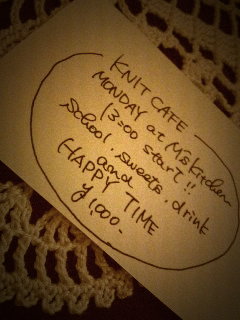 KNIT CAFE
MONDAY at M's Kitchen
13:00 start!!
School, sweets, drink
and
HAPPY TIME
¥1,000.